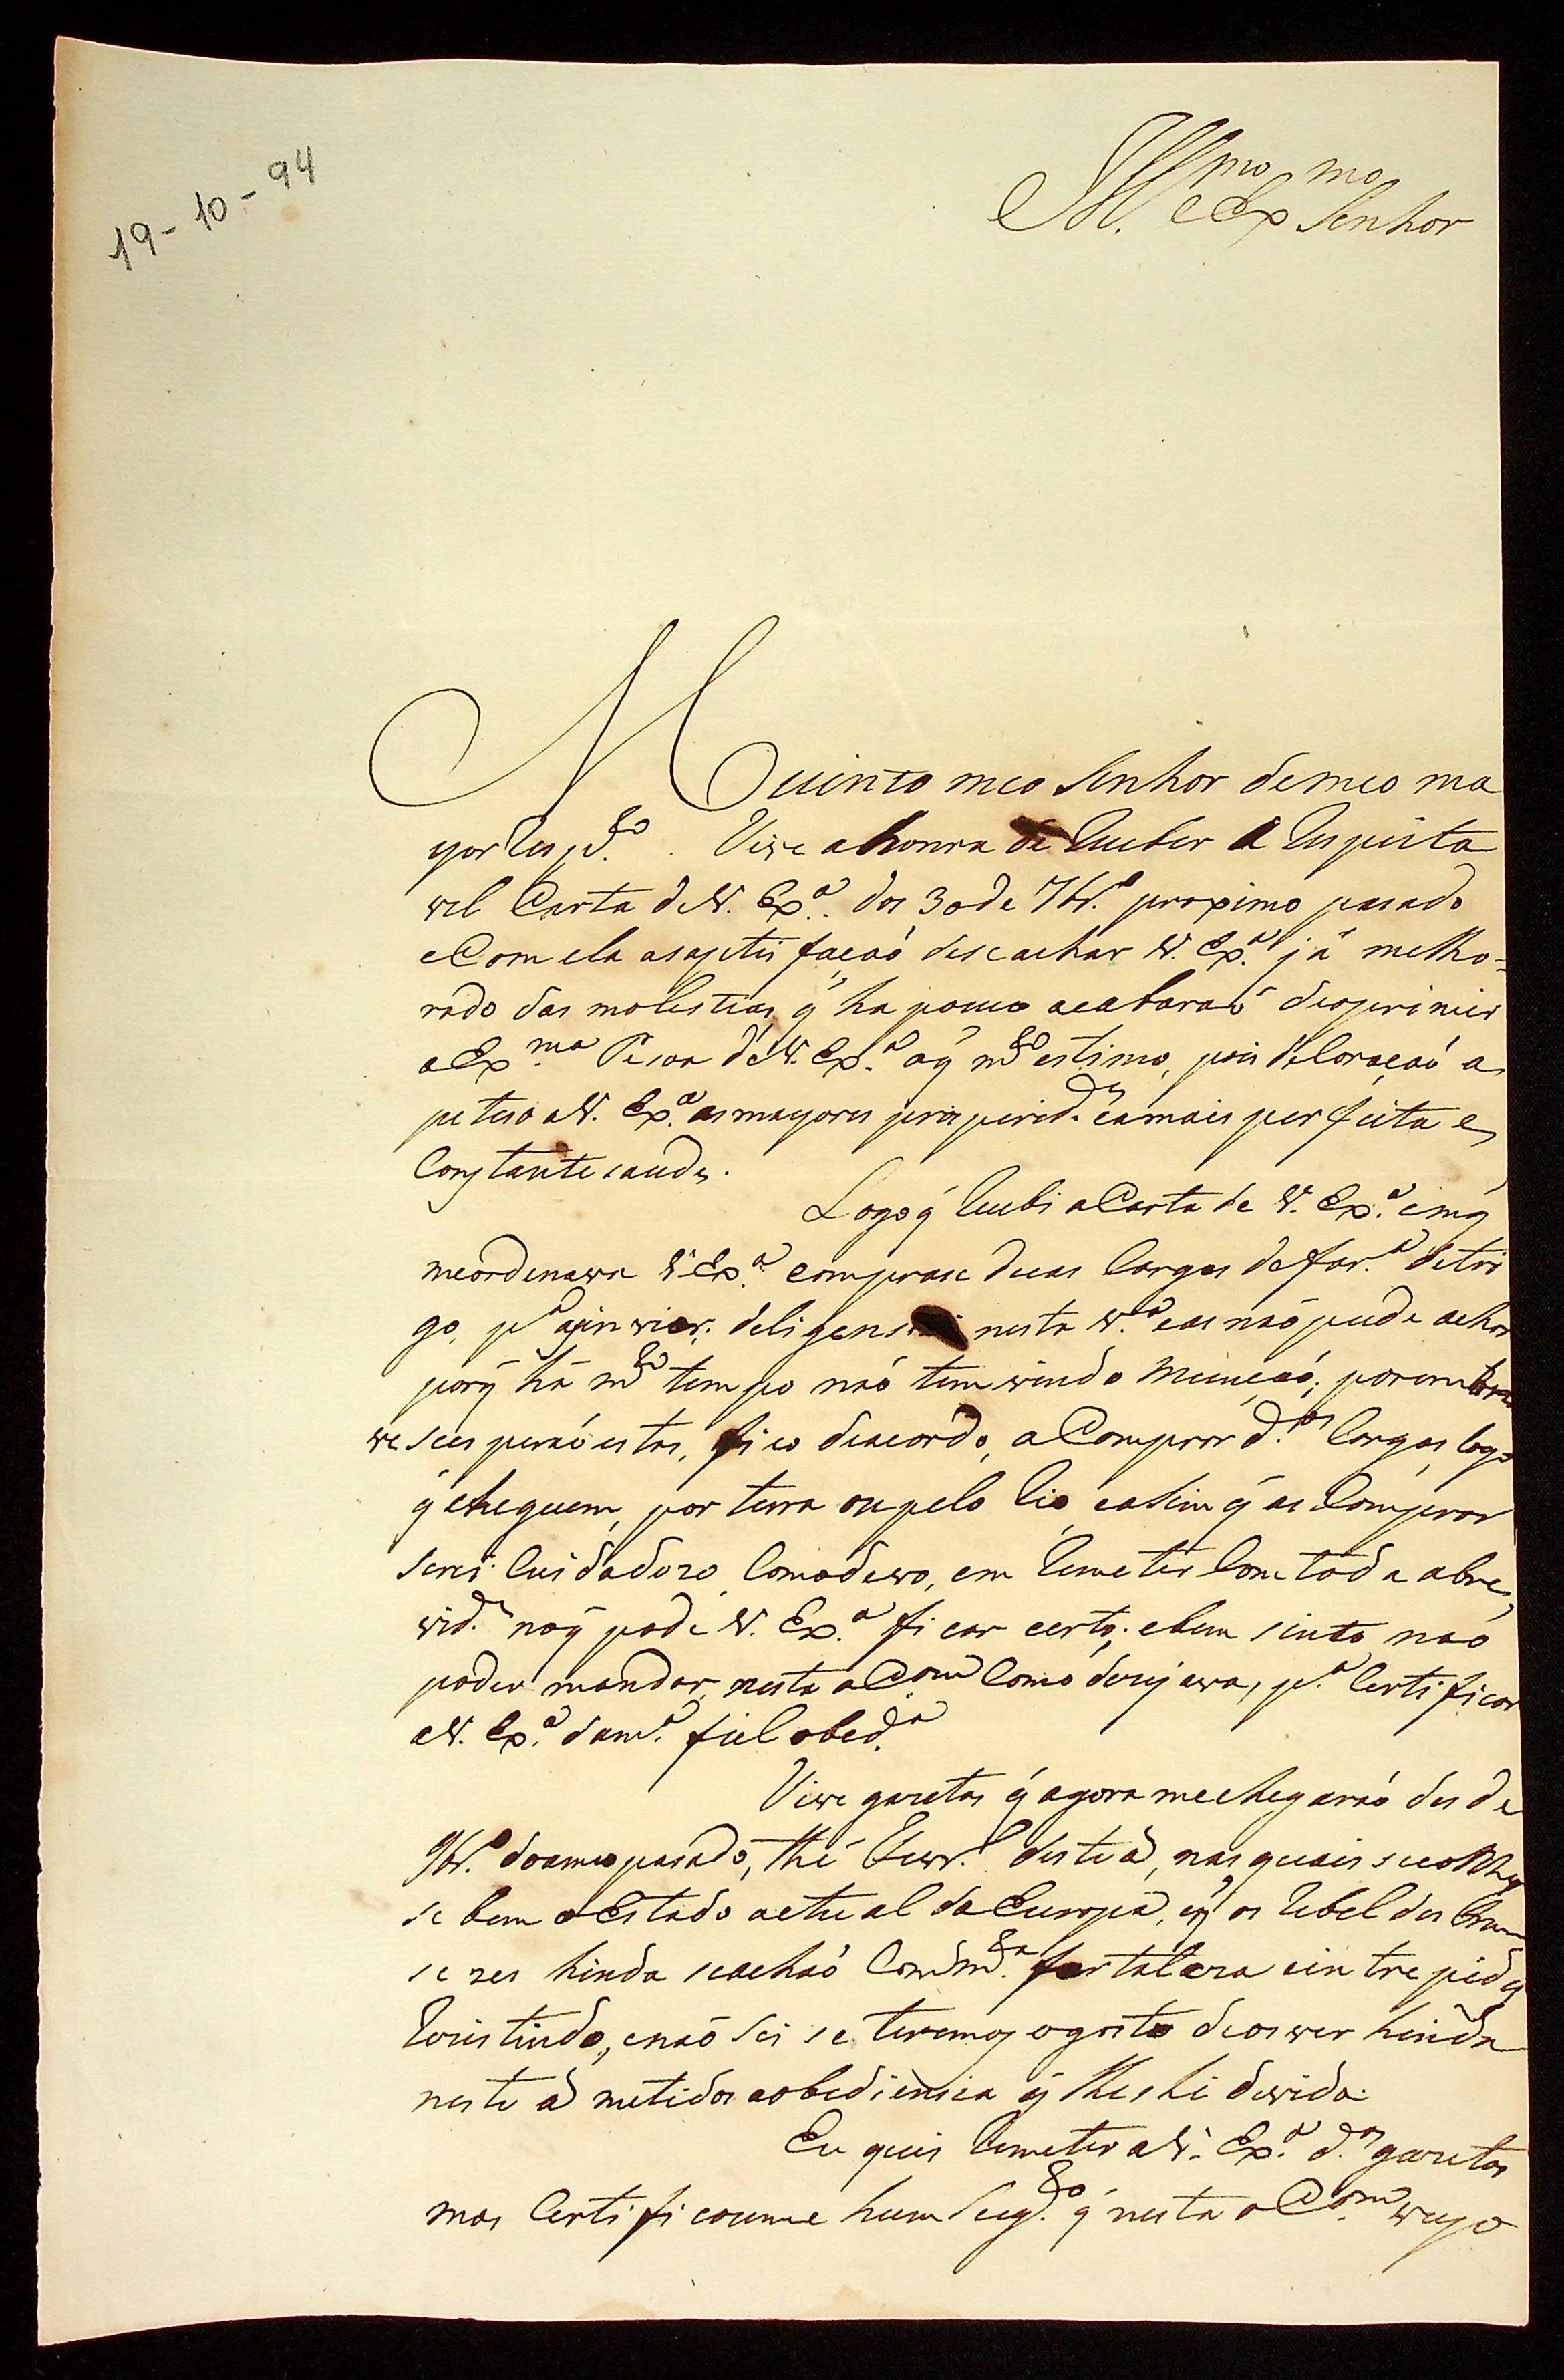 19-10-94
Ill.mo e Ex.mo Senhor
Muinto meo Senhor de meo ma
yor Resp.to. Tive a honra de Receber a Respeita
vel Carta de V. Ex.a dos 30 de 7br.o proximo pasado
e Com ela a sagtis façaó de se achar V. Ex.a já melho=
rado das molestias q̃ ha pouco acabaraó de oprimir
a Ex.ma Pesoa de V. Ex.a o q̃ m.to estimo, pois de Coraçaó a
peteso a V. Ex.a as mayores prosperid.es e a mais perfeita e
Constante saude.
Logo q̃ Recebi a Carta de V. Ex.a em q̃
me ordenava V. Ex.a comprase duas Cargas de far.a de tri
go, p.a inviar; nesta V.a e as naó pude achar
porq̃ há m.to tempo naó tem vindo Munçaó; porem
se esperaó estas, fico de acordo, a Comprar d.as Cargas, logo
q̃ cheguem, por terra ou pelo Rio, e asim q̃ as Comprar
serei Cuidadozo, Como devo, em Remeter Com toda a abre
vid.e no q̃ pode V. Ex.a ficar certo; e bem sinto naó
poder mandar nesta o Com.or Como dezejava, p.a Certificar
a V. Ex.a da m.a fiel obed.a
Tive gazetas q̃ agora me chegaraó des de
9br.o do anno pasado, thé Fevr.o deste a.o, nas quais
se bem o Estado actual da Europa, e q̃ os Rebeldes Fran
sezes hinda se achaó Com m.ta fortaleza e intrepidez
Rezistindo, e naó sei se teremos o gosto de os ver hinda
neste a.o metidos a obediensia q̃ lhes hé devida.
Eu quis Remeter a V. Ex.a d.as gazetas
mas Certificoume hum Sug.to q̃ nesta o Com.or vejo